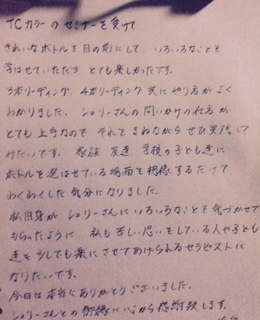 TCカラーのセミナーを受けて
きれいなボトルを目の前にして いろいろなことを
学ばせていただき とても楽しかったです。
3本リーディング、4本リーディング 共に やり方が よく
わかりました。シェリーさんの問いかけの仕方が
とても上手なので それを まねながら ぜひ実践して
みたいです。 家族 友達 学校の子ども達に
ボトルを選ばせている場面を想像するだけで
わくわくした気分になりました。
私自身が シェリーさんに いろいろなことを気づかせて
もらったように 私も苦しい思いをしている人や子ども
達を少しでも楽にさせてあげられるセラピストに
なりたいです。
今日は本当にありがとうございました。
シェリーさんとの御縁に心から感謝致します。